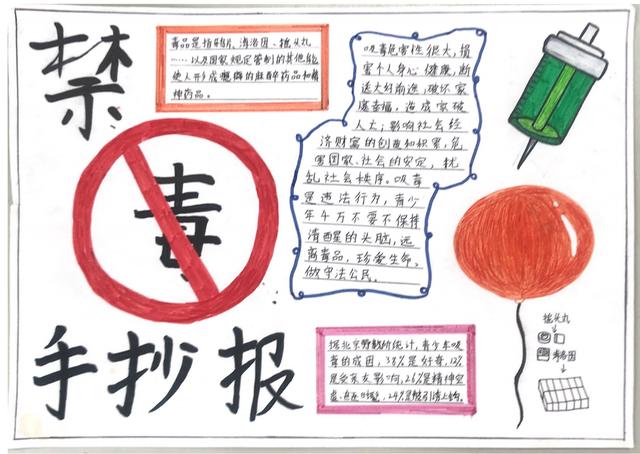 禁
毒
手抄报
毒品是指鸦片、海洛因、摇头丸
……以及国家规定管制的其他能
使人形成瘾癖的麻醉药品和精
神药品。
吸毒危害性很大，损
害个人身心健康，断
送大好前途，破坏家
庭幸福，造成家破
人亡；影响社会经
济财富的创造和积累，危
害国家、社会的安定，扰
乱社会秩序。吸毒
是违法行为，青少
年千万不要不保持
清醒的头脑，远
离毒品，珍爱生命，
做守法公民。
据北京 所统计，青少年吸
毒的成因，38%是好奇，12%
是受亲友影响，26%是精神空
虚、 ，24%是被引诱上钩。
摇头丸
海洛因